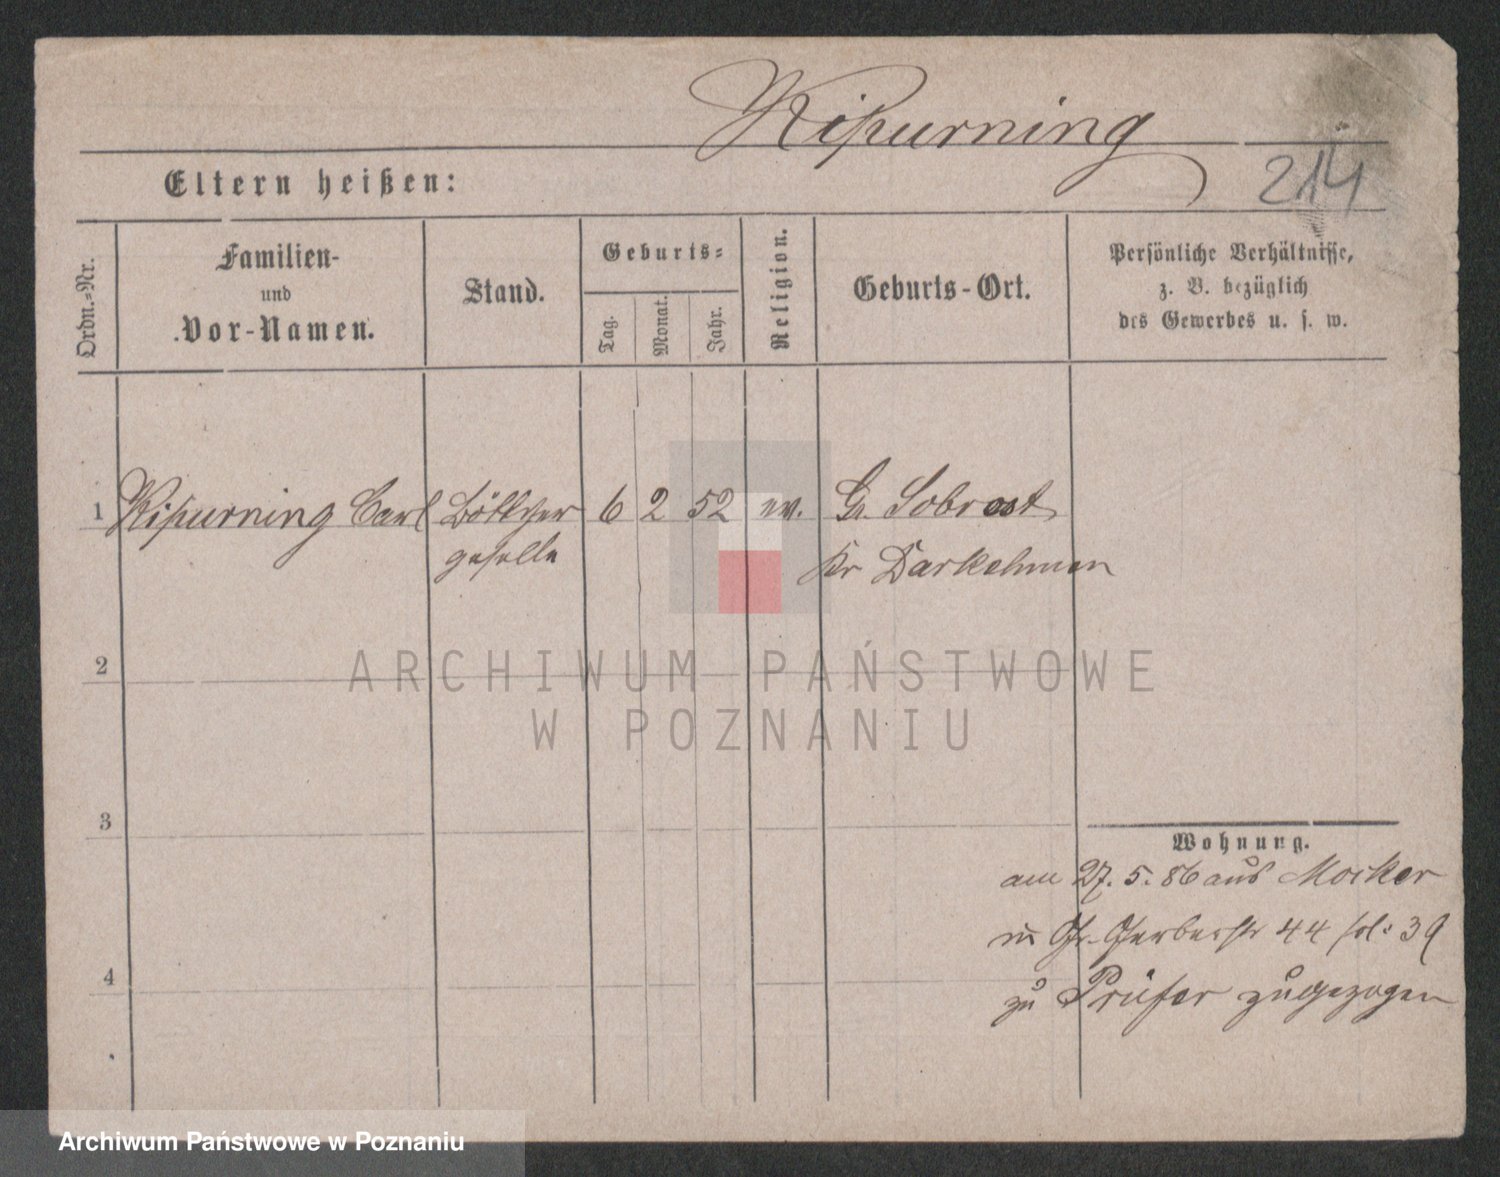 Kißurning
214
Eltern heißen:
Ordn.-Nr.
Familien-
und
Vor-Namen.
Stand.
Geburts-
Tag.
Monat.
Jahr.
Religion.
Geburts-Ort.
Persönliche Verhältnisse,
z. B. bezüglich
des Gewerbes u. s. w.
1 Kißurning Carl Böttcher 6 2 52 ev. Gr. Sobrost
geselle Kr Darkehmen
2
ARCHIWUM PAŃSTWOWE
W POZNANIU
3
Wohnung.
am 27. 5. 86 aus Mocker
in Gr. Gerberstr 44 fol: 39
4
zu Prüfer zugezogen
Archiwum Państwowe w Poznaniu